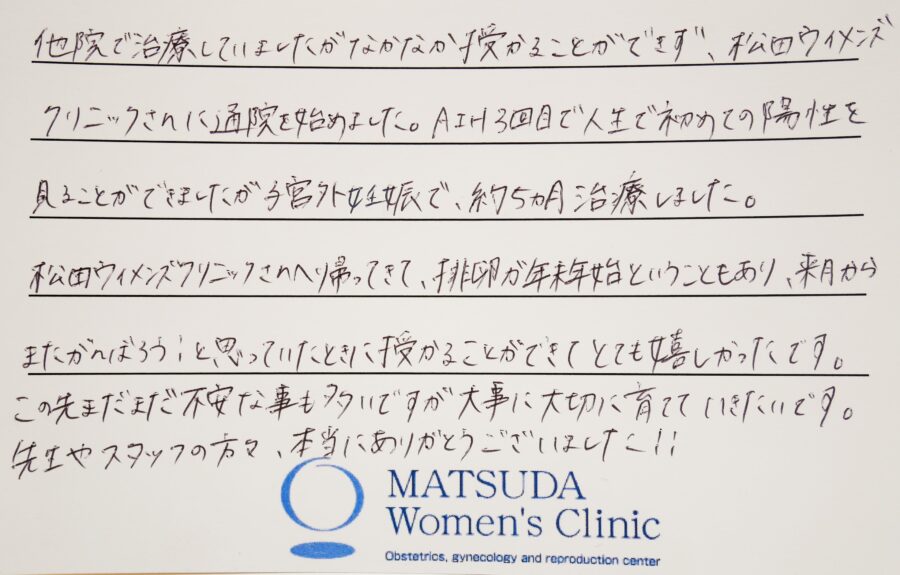 他院で治療していましたがなかなか授かることができず、松田ウィメンズ
クリニックさんに通院を始めました。AIH3回目で人生で初めての陽性を
見ることができましたが子宮外妊娠で、約5ヵ月治療しました。
松田ウィメンズクリニックさんへり帰ってきて、排卵が年末年始ということもあり、来月から
またがんばろう!と思っていたときに授かることができてとても嬉しかったです。
この先まだまだ不安な事も多いですが大事に大切に育てていきたいです。
先生やスタッフの方々、本当にありがとうございました!!
MATSUDA
Women's Clinic
Obstetrics, gynecology and reproduction center